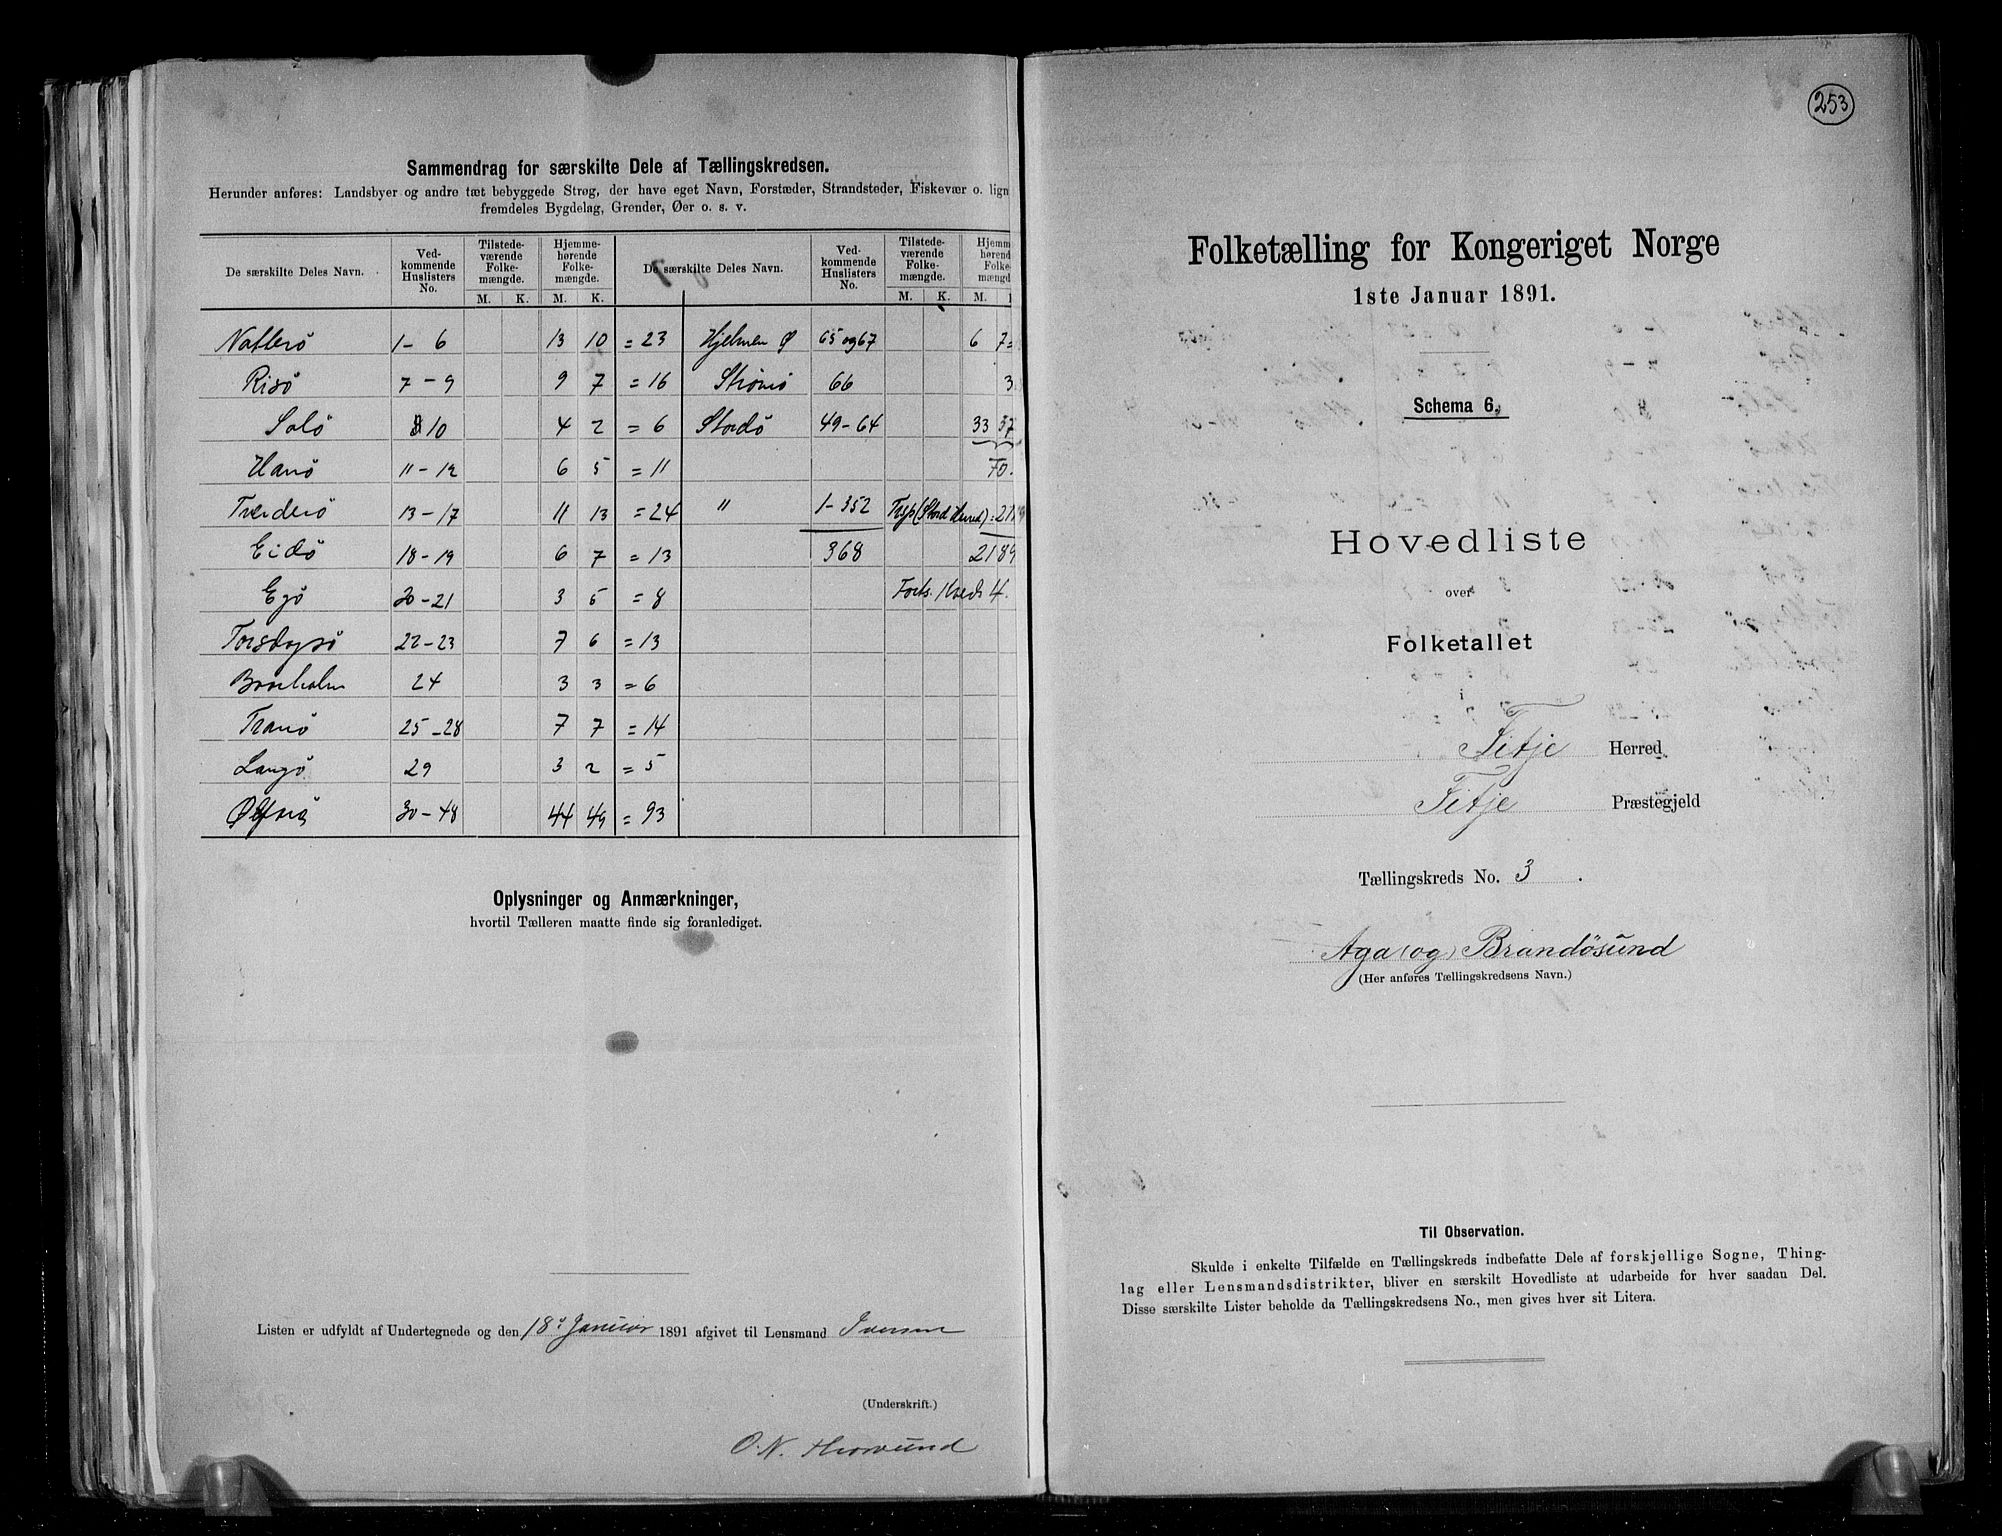 Sammendrag for særskilte Dele af Tællingskredsen.
Herunder anføres: Landsbyer og andre tæt bebyggede Strøg, der have eget Navn, Forstæder, Strandsteder, Fiskevær o. lign
fremdeles Bygdelag, Grender, Øer o. s. v.
De særskilte Deles Navn. Ved-kommende Huslisters No. Tilstede-værende Folke-mængde. Hjemme-hørende Folke-mængde. De særskilte Deles Navn. Ved-kommende Huslisters No. Tilstede-værende Folke-mængde. Hjemm hørend Folke- mængd
M. K. M. K. M. K. M.
Natterö 1- 6 13 10 = 23 Hjelmen Ø 65 og 67 6 7=
Risö 7 - 9 9 7 = 16 Strömö 66 3
Solö 10 4 2 = 6 Stordö 49-64 33 37
Hanö 11 - 12 6 5 = 11 70.
Tvederö 13 - 17 11 13 = 24 " 1-352 (Stord Herred) =
Eidö 18 - 19 6 7 = 13 368 2189
Egö 20-21 3 5 = 8 Forts. Kreds 4.
22-23 7 6 = 13
Bornholm 24 3 3 = 6
Tranö 25-28 7 7 = 14
Langö 29 3 2 = 5
30-48 44 49 = 93
Oplysninger og Anmærkninger,
hvortil Tælleren maatte finde sig foranlediget.
Listen er udfyldt af Undertegnede og den 18de Januar 1891 afgivet til Lensmand Iversen
(Underskrift.)
O. N.
253
Folketælling for Kongeriget Norge
1ste Januar 1891.
Schema 6.
Hovedliste
over
Folketallet
i
Fitje Herred
Fitje Præstegjeld
Tællingskreds No. 3.
Aga (og) Brandösund
(Her anføres Tællingskredsens Navn.)
Til Observation.
Skulde i enkelte Tilfælde en Tællingskreds indbefatte Dele af forskjellige Sogne, Thing-
lag eller Lensmandsdistrikter, bliver en særskilt Hovedliste at udarbeide for hver saadan Del.
Disse særskilte Lister beholde da Tællingskredsens No., men gives hver sit Litera.